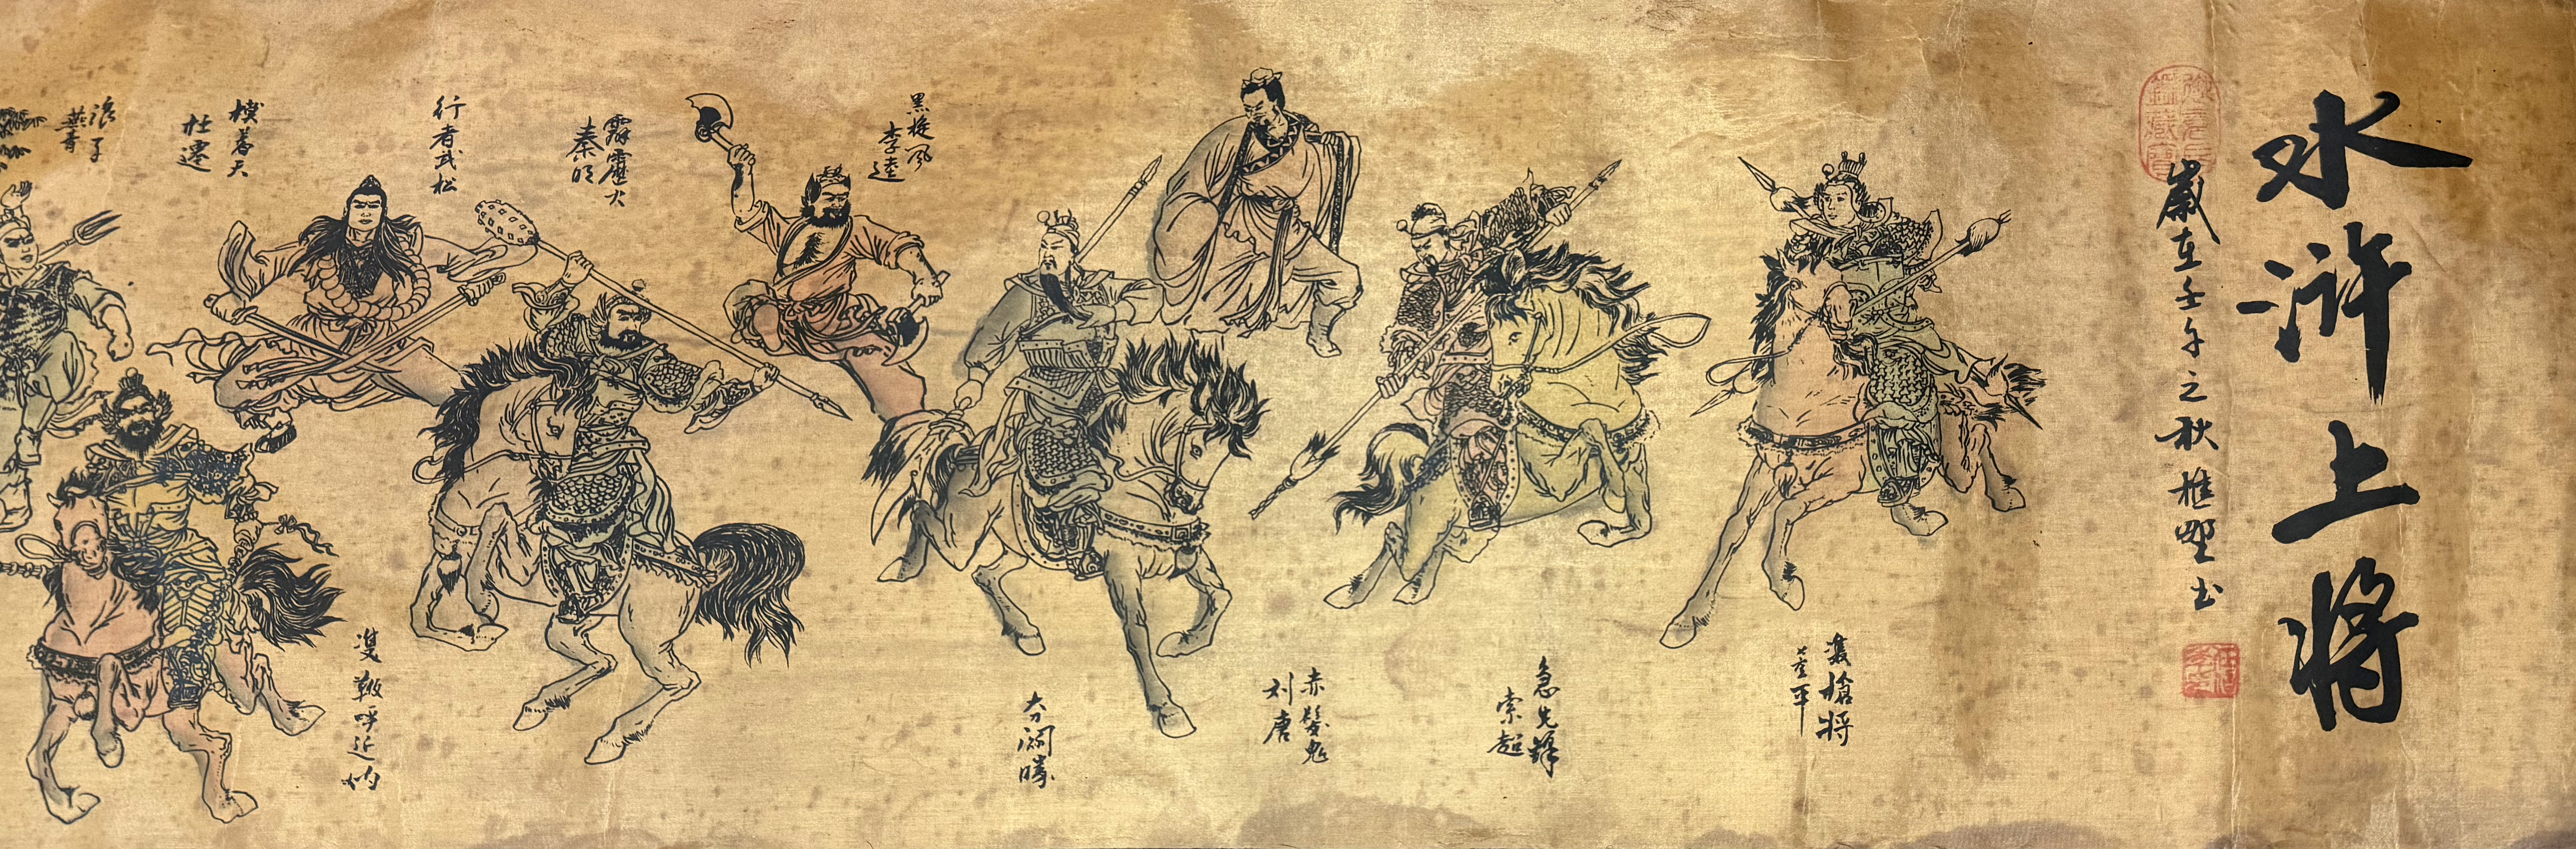 水浒上将
歲在壬午之秋樵野书
雙槍将
董平
急先鋒
索超
赤髮鬼
刘唐
大刀関勝
黑旋风
李逵
霹靂火
秦明
行者武松
雙鞭呼延灼
摸着天
杜遷
浪子
燕青